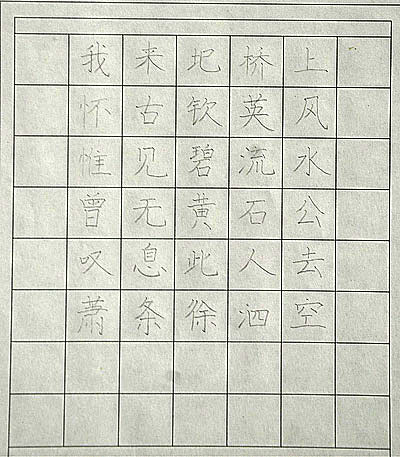 我来圯桥上
怀古钦英风
惟见碧流水
曾无黄石公
叹息此人去
萧条徐泗空